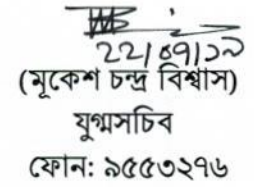 ২২/০৭/১৯
(মূকেশ চন্দ্র বিশ্বাস)
যুগ্মসচিব
ফোন: ৯৫৫৩২৭৬